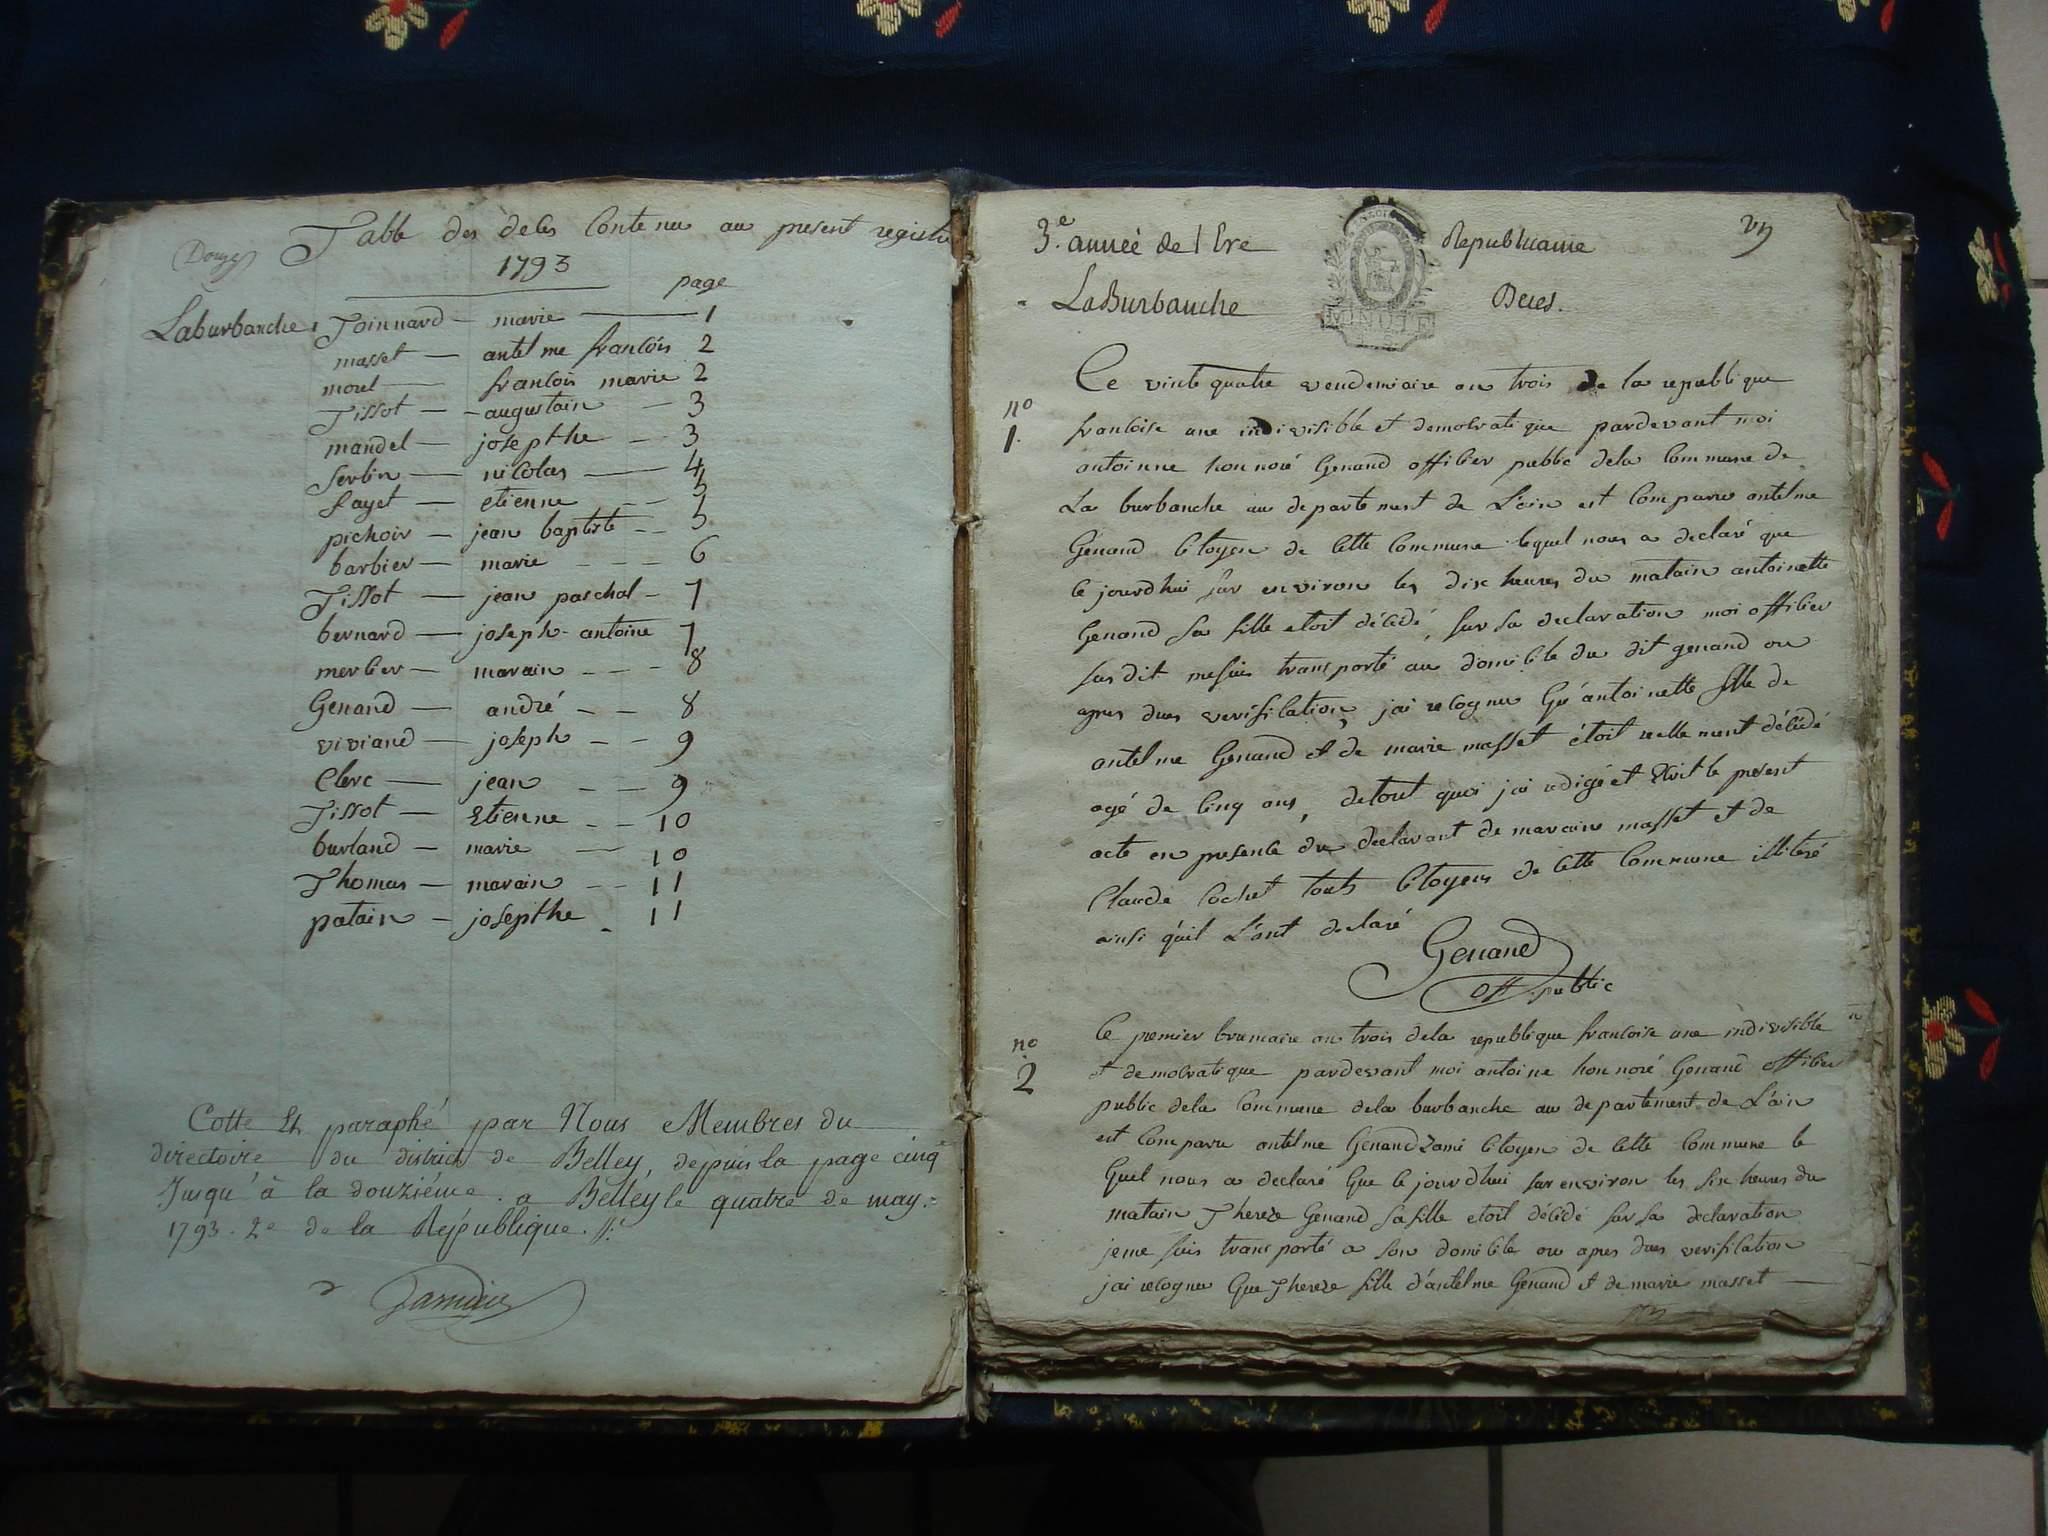 Douze
Table des deces Contenu au present registre
1793
page
Laburbanche, Joinnard — marie — 1
masset — antelme francois 2
morel — francois marie 2
Tissot — augustain — 3
mandel — josepthe — 3
Serbin — nicolas — 4
fayet — etienne — 5
pichoir — jean baptiste — 5
barbier — marie — 6
Tissot — jean paschal — 7
bernard — joseph-antoine 7
merlier — marain — 8
Genand — andré — 8
viviand — joseph — 9
Clerc — jean — 9
Tissot — Etienne — 10
burland — marie — 10
Thomas — marain — 11
patain — josepthe 11
Cotté Et paraphé par Nous Membres du
directoire du district de Belley, depuis la page cinq
Jusqu'à la douziéme. a Belléy le quatre de may.
1793. 2e de la République.
3.e année de l Ere Republicaine
LaBurbanche Deces.
MINUTE
Ce vinte quatre vendemiaire an trois de la republique
no 1. francoise une indivisible et democratique pardevant moi
antoinne honnoré Genand officier public dela Commune de
La burbanche au departement de L'ain est Comparu antelme
Génand Citoyen de Cette Commune lequel nous a declaré que
le jourdhui sur environ les dix heures du matain antoinette
Genand sa fille etoit décédé, sur sa declaration moi officier
susdit me suis transporté au domicile du dit genand ou
apres dues verification, jai recognu Qu'antoinette fille de
antelme Genand et de marie masset étoit reellement décédé
agé de Cinq ans, detout quoi jai redigé et Ecrit le present
acte en presence du declarant de marain masset et de
Claude Cochet touts Citoyens de Cette Commune illiteré
ainsi quil L'ont declaré
Genand
off. public
no 2 Ce premier brumaire an trois dela republique francoise une indivisible
et democratique pardevant moi antoine honnoré Genand officier
public dela Commune dela burbanche au departement de L'ain
est Comparu antelme Genand Citoyen de Cette Commune le
Quel nous a declaré Que le jourdhui sur environ les six heures du
matain Thereze Genand sa fille etoit décédé sur sa declaration
jeme suis transporté a son domicile ou apres dues verification
jai recognu Que Thereze fille d'antelme Genand et de marie masset —